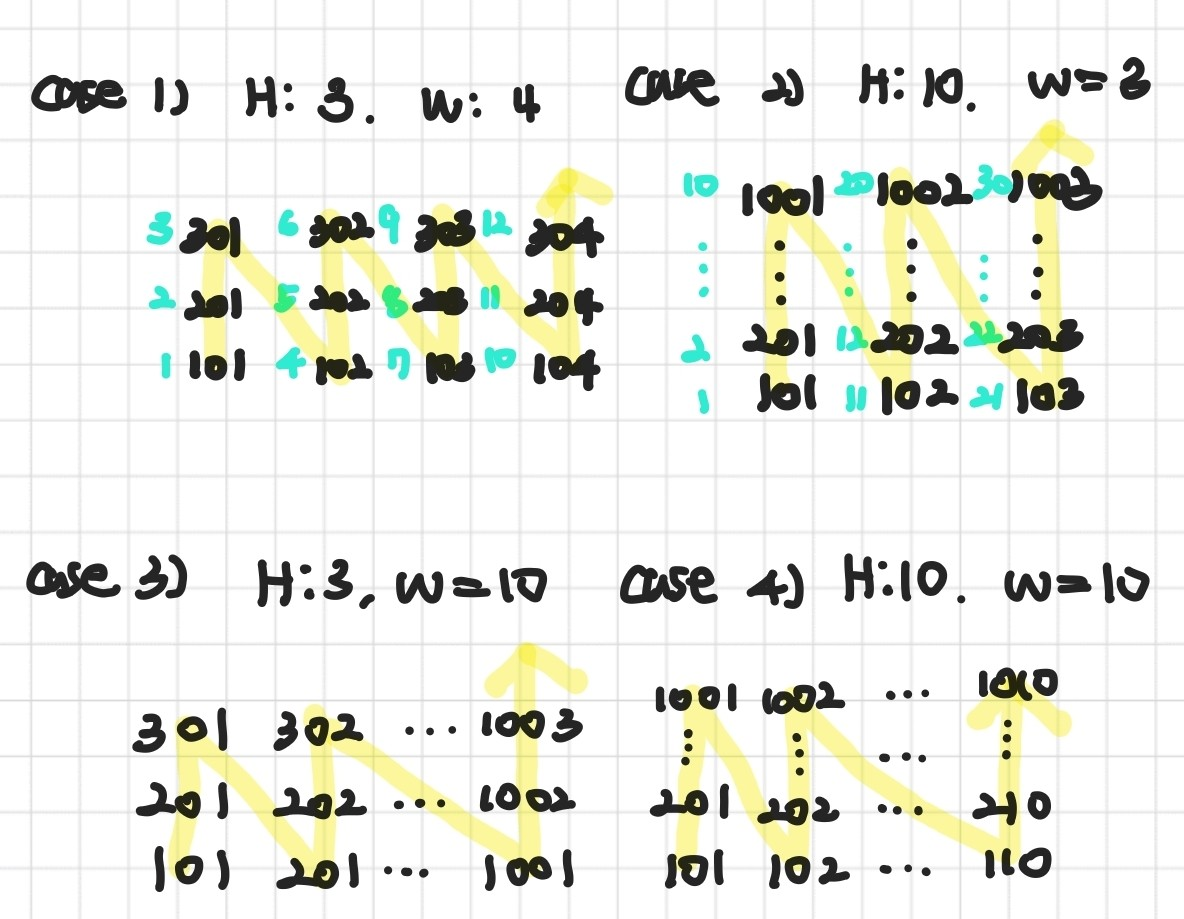 case 1) H: 3. W: 4
3 301 6 302 9 303 12 304
2 201 5 202 8 203 11 204
1 101 4 102 7 103 10 104
case 2) H: 10. W=3
10 1001 20 1002 30 1003
2 201 12 202 22 203
1 101 11 102 21 103
case 3) H:3, W=10
301 302 ... 1003
201 202 ... 1002
101 201 ... 1001
case 4) H:10. W=10
1001 1002 ... 1010
...
201 202 ... 210
101 102 ... 110